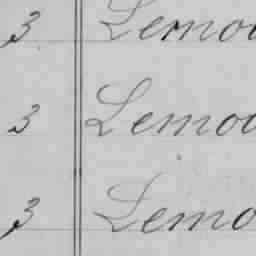 3 Lemo
3 Lemo
3 Lemo